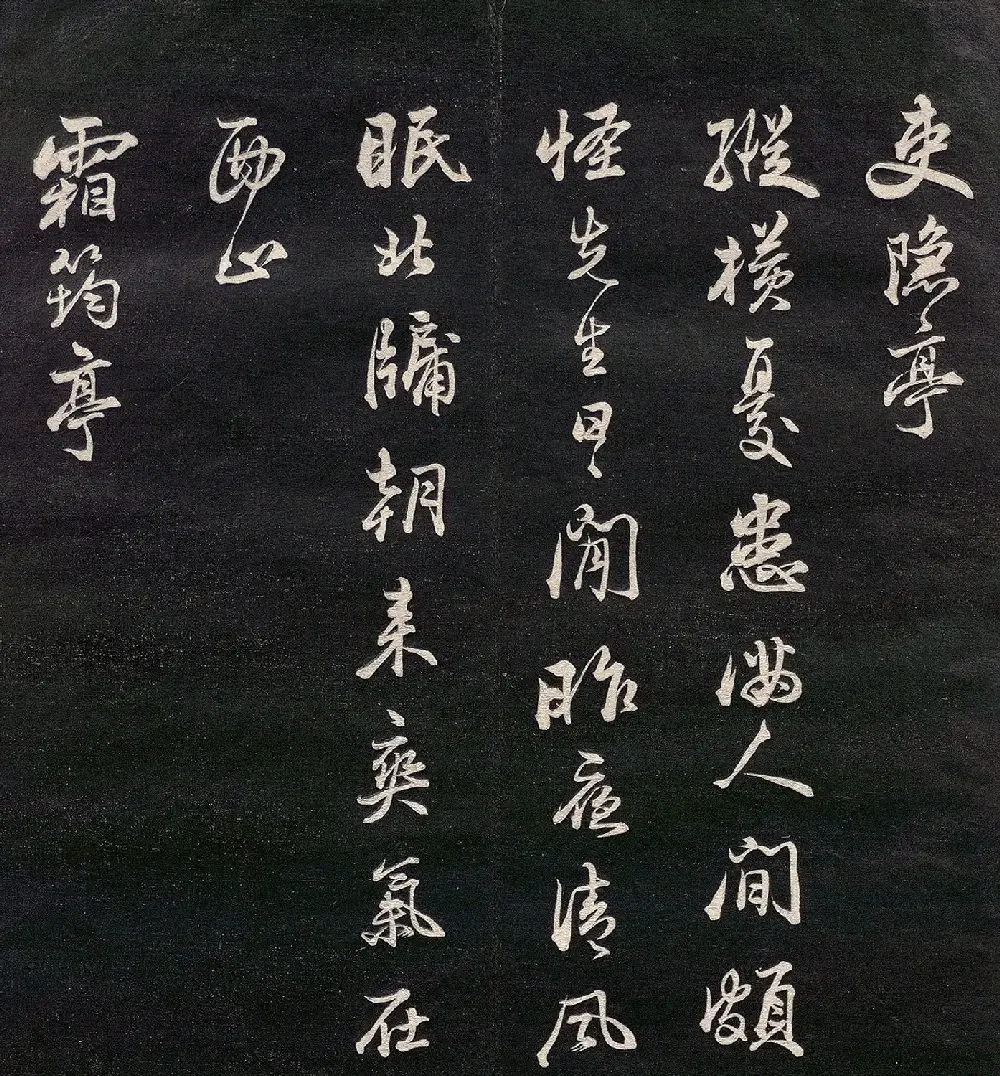 吏隱亭
縱橫憂患滿人間頗
怪先生日〻閒昨夜清風
眠北牖朝來爽氣在
西山
霜筠亭